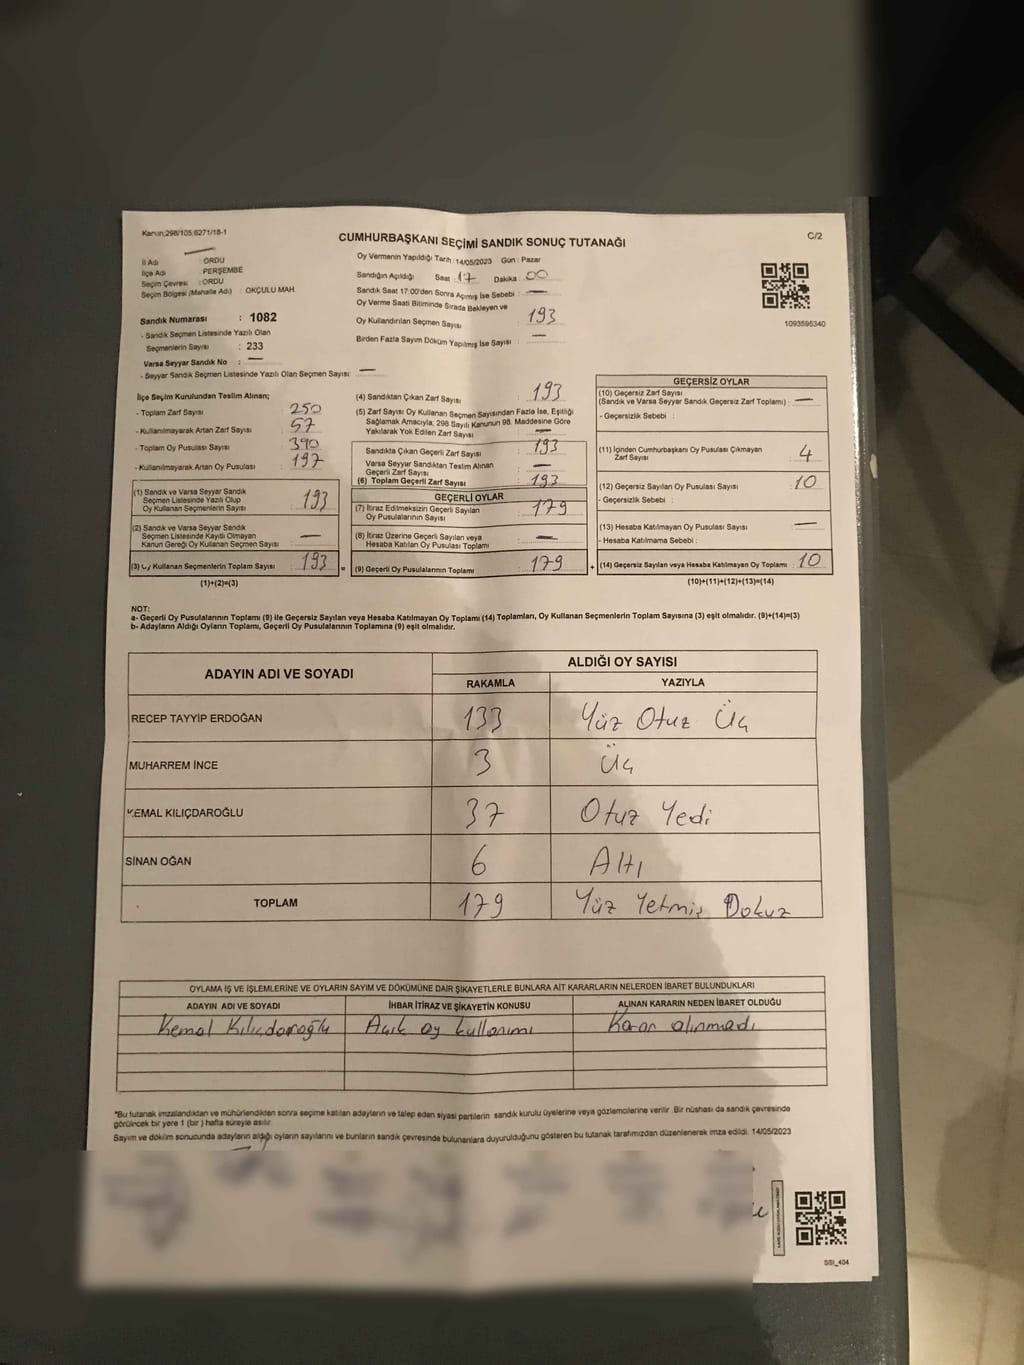 Kanun;298/105;6271/18-1
CUMHURBAŞKANI SEÇİMİ SANDIK SONUÇ TUTANAĞI
C/2
İl Adı : ORDU
İlçe Adı : PERŞEMBE
Seçim Çevresi : ORDU
Seçim Bölgesi (Mahalle Adı) : OKÇULU MAH.
Sandık Numarası : 1082
- Sandık Seçmen Listesinde Yazılı Olan
Seçmenlerin Sayısı : 233
Varsa Seyyar Sandık No : —
- Seyyar Sandık Seçmen Listesinde Yazılı Olan Seçmen Sayısı: —
Oy Vermenin Yapıldığı Tarih :14/05/2023 Gün : Pazar
Sandığın Açıldığı Saat : 17 Dakika : 00
Sandık Saat 17:00'den Sonra Açımış İse Sebebi : —
Oy Verme Saati Bitiminde Sırada Bekleyen ve
Oy Kullandırılan Seçmen Sayısı : 193
Birden Fazla Sayım Döküm Yapılmış İse Sayısı : —
1093595340
İlçe Seçim Kurulundan Teslim Alınan;
- Toplam Zarf Sayısı : 250
- Kullanılmayarak Artan Zarf Sayısı : 57
- Toplam Oy Pusulası Sayısı : 390
- Kullanılmayarak Artan Oy Pusulası : 197
(1) Sandık ve Varsa Seyyar Sandık
Seçmen Listesinde Yazılı Olup
Oy Kullanan Seçmenlerin Sayısı : 193
(2) Sandık ve Varsa Seyyar Sandık
Seçmen Listesinde Kayıtlı Olmayan
Kanun Gereği Oy Kullanan Seçmen Sayısı : —
(3) Oy Kullanan Seçmenlerin Toplam Sayısı : 193 =
(1)+(2)=(3)
(4) Sandıktan Çıkan Zarf Sayısı : 193
(5) Zarf Sayısı Oy Kullanan Seçmen Sayısından Fazla İse, Eşitliği
Sağlamak Amacıyla; 298 Sayılı Kanunun 98. Maddesine Göre
Yakılarak Yok Edilen Zarf Sayısı : —
Sandıkta Çıkan Geçerli Zarf Sayısı : 193
Varsa Seyyar Sandıktan Teslim Alınan
Geçerli Zarf Sayısı : —
(6) Toplam Geçerli Zarf Sayısı : 193
GEÇERLİ OYLAR
(7) İtiraz Edilmeksizin Geçerli Sayılan
Oy Pusulalarının Sayısı : 179
(8) İtiraz Üzerine Geçerli Sayılan veya
Hesaba Katılan Oy Pusulası Toplamı : —
(9) Geçerli Oy Pusulalarının Toplamı : 179 +
GEÇERSİZ OYLAR
(10) Geçersiz Zarf Sayısı
(Sandık ve Varsa Seyyar Sandık Geçersiz Zarf Toplamı) : —
- Geçersizlik Sebebi :
(11) İçinden Cumhurbaşkanı Oy Pusulası Çıkmayan
Zarf Sayısı : 4
(12) Geçersiz Sayılan Oy Pusulası Sayısı : 10
- Geçersizlik Sebebi :
(13) Hesaba Katılmayan Oy Pusulası Sayısı : —
- Hesaba Katılmama Sebebi :
(14) Geçersiz Sayılan veya Hesaba Katılmayan Oy Toplamı : 10
(10)+(11)+(12)+(13)=(14)
NOT:
a- Geçerli Oy Pusulalarının Toplamı (9) ile Geçersiz Sayılan veya Hesaba Katılmayan Oy Toplamı (14) Toplamları, Oy Kullanan Seçmenlerin Toplam Sayısına (3) eşit olmalıdır. (9)+(14)=(3)
b- Adayların Aldığı Oyların Toplamı, Geçerli Oy Pusulalarının Toplamına (9) eşit olmalıdır.
ADAYIN ADI VE SOYADI
ALDIĞI OY SAYISI
RAKAMLA YAZIYLA
RECEP TAYYİP ERDOĞAN 133 Yüz Otuz Üç
MUHARREM İNCE 3 Üç
KEMAL KILIÇDAROĞLU 37 Otuz Yedi
SİNAN OĞAN 6 Altı
TOPLAM 179 Yüz Yetmiş Dokuz
OYLAMA İŞ VE İŞLEMLERİNE VE OYLARIN SAYIM VE DÖKÜMÜNE DAİR ŞİKAYETLERLE BUNLARA AİT KARARLARIN NELERDEN İBARET BULUNDUKLARI
ADAYIN ADI VE SOYADI İHBAR İTİRAZ VE ŞİKAYETİN KONUSU ALINAN KARARIN NEDEN İBARET OLDUĞU
Kemal Kılıçdaroğlu Açık oy kullanımı Karar alınmadı
*Bu tutanak imzalandıktan ve mühürlendikten sonra seçime katılan adayların ve talep eden siyasi partilerin sandık kurulu üyelerine veya gözlemcilerine verilir. Bir nüshası da sandık çevresinde
görülecek bir yere 1 (bir) hafta süreyle asılır.
Sayım ve döküm sonucunda adayların aldığı oyların sayılarını ve bunların sandık çevresinde bulunanlara duyurulduğunu gösteren bu tutanak tarafımızdan düzenlenerek imza edildi. 14/05/2023
SSI_404